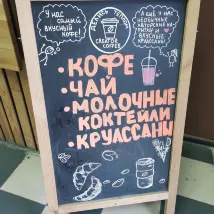 У НАС
САМЫЙ
ВКУСНЫЙ
КОФЕ!
ДЕЛАЕМ ТЕПЛО
CREATIVE
COFFEE
А ЕЩЁ У НАС
НЕОБЫЧНЫЕ
АВТОРСКИЕ НА-
ПИТКИ И
ВКУСНЫЕ
КРУАССАНЫ!
• КОФЕ
• ЧАЙ
• МОЛОЧНЫЕ
КОКТЕЙЛИ
• КРУАССАНЫ